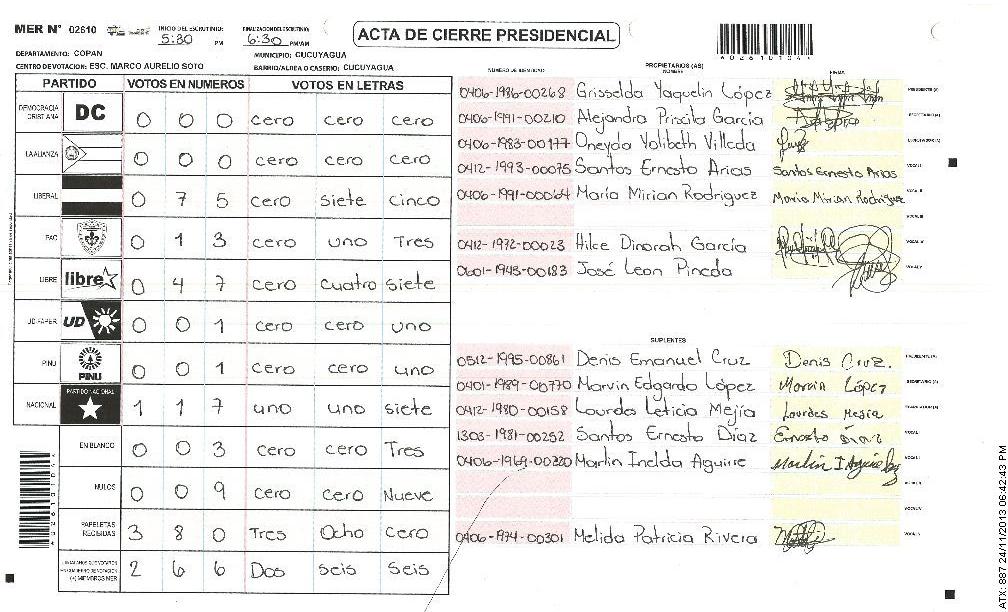 MER N° 02610 INICIO DEL ESCRUTINIO: 5:30 PM FINALIZACION DEL ESCRUTINIO: 6:30 PM/AM
ACTA DE CIERRE PRESIDENCIAL
A02610104A
DEPARTAMENTO: COPAN MUNICIPIO: CUCUYAGUA
CENTRO DE VOTACION: ESC. MARCO AURELIO SOTO BARRIO/ALDEA O CASERIO: CUCUYAGUA
PARTIDO VOTOS EN NUMEROS VOTOS EN LETRAS
DEMOCRACIA CRISTIANA DC 0 0 0 cero cero cero
LA ALIANZA 0 0 0 cero cero cero
LIBERAL 0 7 5 cero siete cinco
PAC 0 1 3 cero uno Tres
LIBRE libre 0 4 7 cero cuatro siete
UD-FAPER UD 0 0 1 cero cero uno
PINU PINU 0 0 1 cero cero uno
NACIONAL PARTIDO NACIONAL 1 1 7 uno uno siete
EN BLANCO 0 0 3 cero cero Tres
NULOS 0 0 9 cero cero Nueve
PAPELETAS RECIBIDAS 3 8 0 Tres Ocho cero
(+) MIEMBROS MER 2 6 6 Dos seis seis
NUMERO DE IDENTIDAD PROPIETARIOS (AS) NOMBRE FIRMA
0406-1986-00268 Grisselda Yaquelin López PRESIDENTE (A)
0406-1991-00210 Alejandra Priscila García SECRETARIO (A)
0406-1983-00177 Oneyda Volibeth Villeda ESCRUTADOR (A)
0412-1993-00075 Santos Ernesto Arias Santos Ernesto Arias VOCAL I
0406-1991-00064 María Mirian Rodriguez Maria Mirian Rodriguez VOCAL II
VOCAL III
0412-1972-00023 Hilce Dinorah García VOCAL IV
0601-1945-00183 José Leon Pineda VOCAL V
SUPLENTES
0512-1995-00861 Denis Emanuel Cruz Denis Cruz. PRESIDENTE (A)
0401-1989-00770 Marvin Edgardo López Marvin López SECRETARIO (A)
0412-1980-00158 Lourdes Leticia Mejía Lourdes Mejia ESCRUTADOR (A)
1303-1981-00252 Santos Ernesto Díaz Ernesto Diaz VOCAL I
0406-1969-00320 Marlin Inelda Aguirre VOCAL II
VOCAL III
VOCAL IV
0406-1974-00301 Melida Patricia Rivera VOCAL V
ATX: 887 24/11/2013 06:42:43 PM